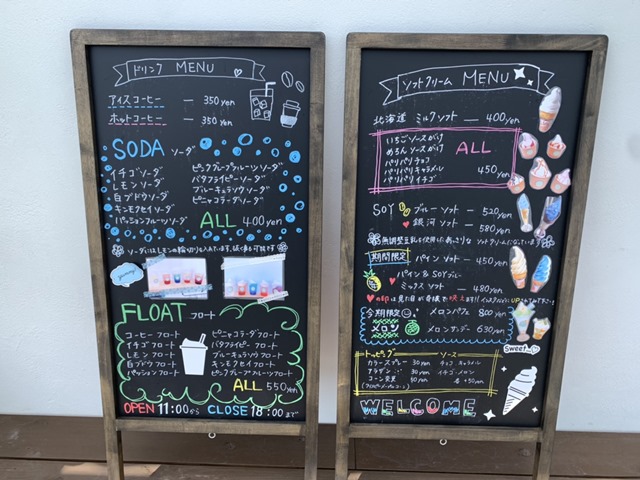 ドリンク MENU
アイスコーヒー — 350yen
ホットコーヒー — 350yen
SODA ソーダ
イチゴソーダ
レモンソーダ
白ブドウソーダ
キンモクセイソーダ
パッションフルーツソーダ
ピンクグレープフルーツソーダ
バタフライピーソーダ
ブルーキュラソウソーダ
ピニャコラーダソーダ
ALL 400yen
FLOAT フロート
コーヒーフロート
イチゴフロート
レモンフロート
白ブドウフロート
パッションフロート
ピニャコラーダフロート
バタフライピーフロート
ブルーキュラソウフロート
キンモクセイフロート
ピンクグレープフルーツフロート
ALL 550yen
OPEN 11:00から CLOSE 18:00まで
ソフトクリーム MENU
北海道 ミルクソフト — 400yen
いちごソースがけ
めろんソースがけ
パリパリチョコ
パリパリキャラメル
パリパリイチゴ
ALL
450yen
SOY ブルーソフト — 520yen
銀河ソフト — 580yen
無調整豆乳を使用したあっさりな ソフトクリームになっています
期間限定 パインソフト — 450yen
パイン&SOYブルー
ミックスソフト — 480yen
今期限定
メロン
メロンパフェ 800yen
メロンサンデー 630yen
トッピング
カラースプレー 30yen
アラザン 30yen
コーン変更 80yen
ソース
チョコ キャラメル
イチゴ メロン
各 +50yen
Sweet
WELCOME